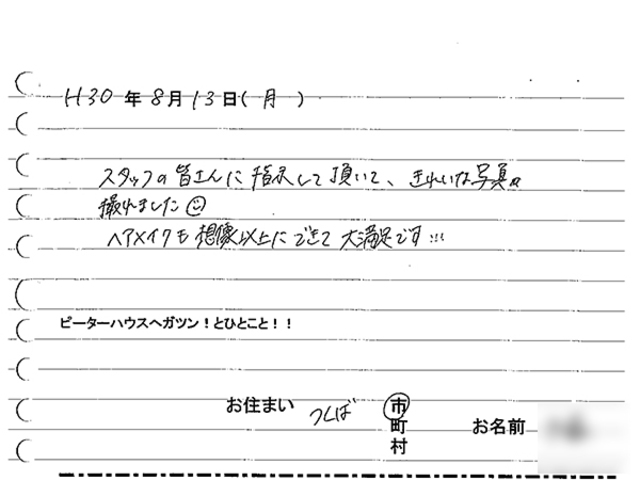 H30年8月13日(月)
スタッフの皆さんに指示して頂いて、きれいな写真が
撮れました☺
ヘアメイクも想像以上にできて大満足です!!!
ピーターハウスへガツン!とひとこと!!
お住まい つくば 市
町
村
お名前